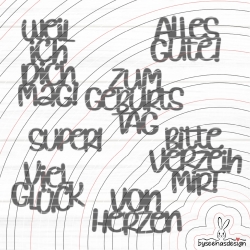 Weil
ich
Dich
mag!
Alles
Gute!
Zum
Geburts
tag
Super!
Bitte
verzeih
mir!
Viel
Glück
Von
Herzen
byseeinasdesign